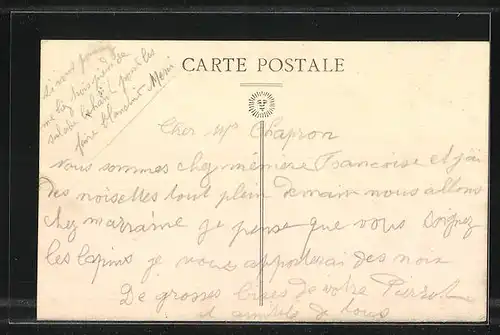 si vous pouvez
me les
salade
faire blanchir Merci
CARTE POSTALE
Cher Mr Chapron
Nous sommes chez mémère Françoise et j'ai
des noisettes tout plein demain nous allons
chez marraine je pense que vous soignez
les lapins je vous apporterai des noix
De grosses bises de votre Pierrot
et amitiés de tous